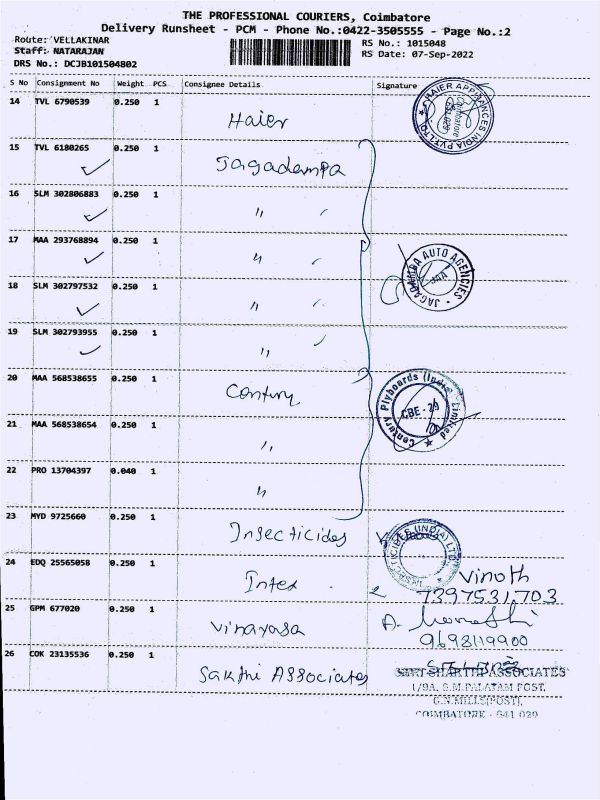 THE PROFESSIONAL COURIERS, Coimbatore
Delivery Runsheet - PCM - Phone No.:0422-3505555 - Page No.:2
Route: VELLAKINAR
RS No.: 1015048
Staff: NATARAJAN
RS Date: 07-Sep-2022
DRS No.: DCJB101504802
S No Consignment No Weight PCS Consignee Details Signature
14 TVL 6790539 0.250 1 Haier
HAIER APPLIANCES INDIA PVT.LTD
15 TVL 6180265 0.250 1 Jagadampa
16 SLM 302806883 0.250 1 "
17 MAA 293768894 0.250 1 "
JAGADAMBA AUTO AGENCIES
18 SLM 302797532 0.250 1 "
19 SLM 302793955 0.250 1 "
20 MAA 568538655 0.250 1 Century
Century Plyboards (India) Limited
CBE - 29
21 MAA 568538654 0.250 1 "
22 PRO 13704397 0.040 1 "
23 MYD 9725660 0.250 1 Insecticides
INSECTICIDES (INDIA) LTD
24 EDQ 25565058 0.250 1 Intex
Vinoth
7397531703
25 GPM 677020 0.250 1 Vinayasa
9698119900
26 COK 23135536 0.250 1 Sakthi Associates
ASSOCIATES
1/9A, S.M.PALAYAM POST,
G.N.MILLS(POST),
COIMBATORE - 641 029